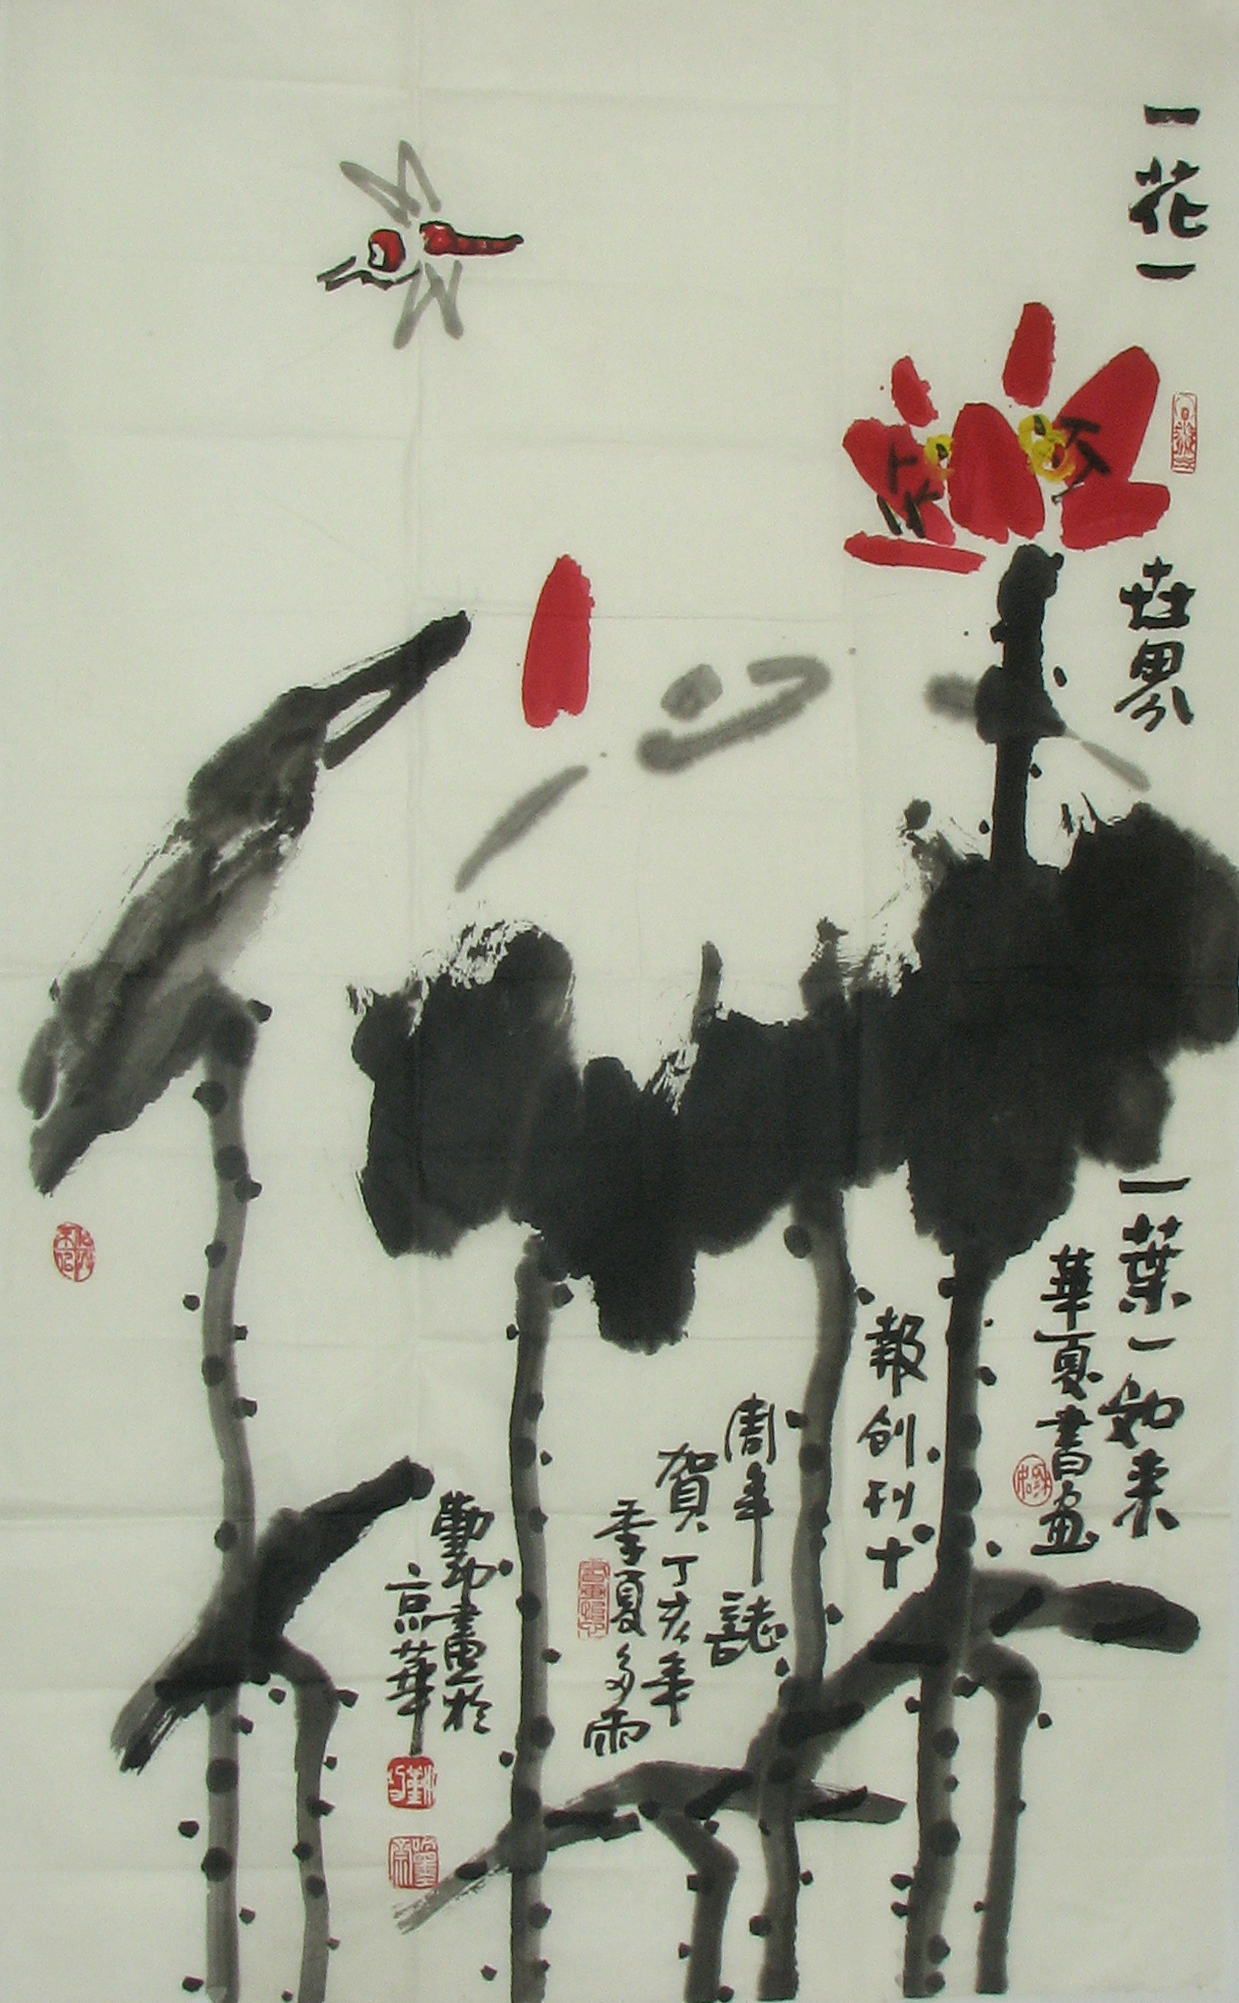 一花一世界
一葉一如来
華夏書畫
報創刊十
周年誌
賀丁亥年
季夏多雨
勤畫於
京華